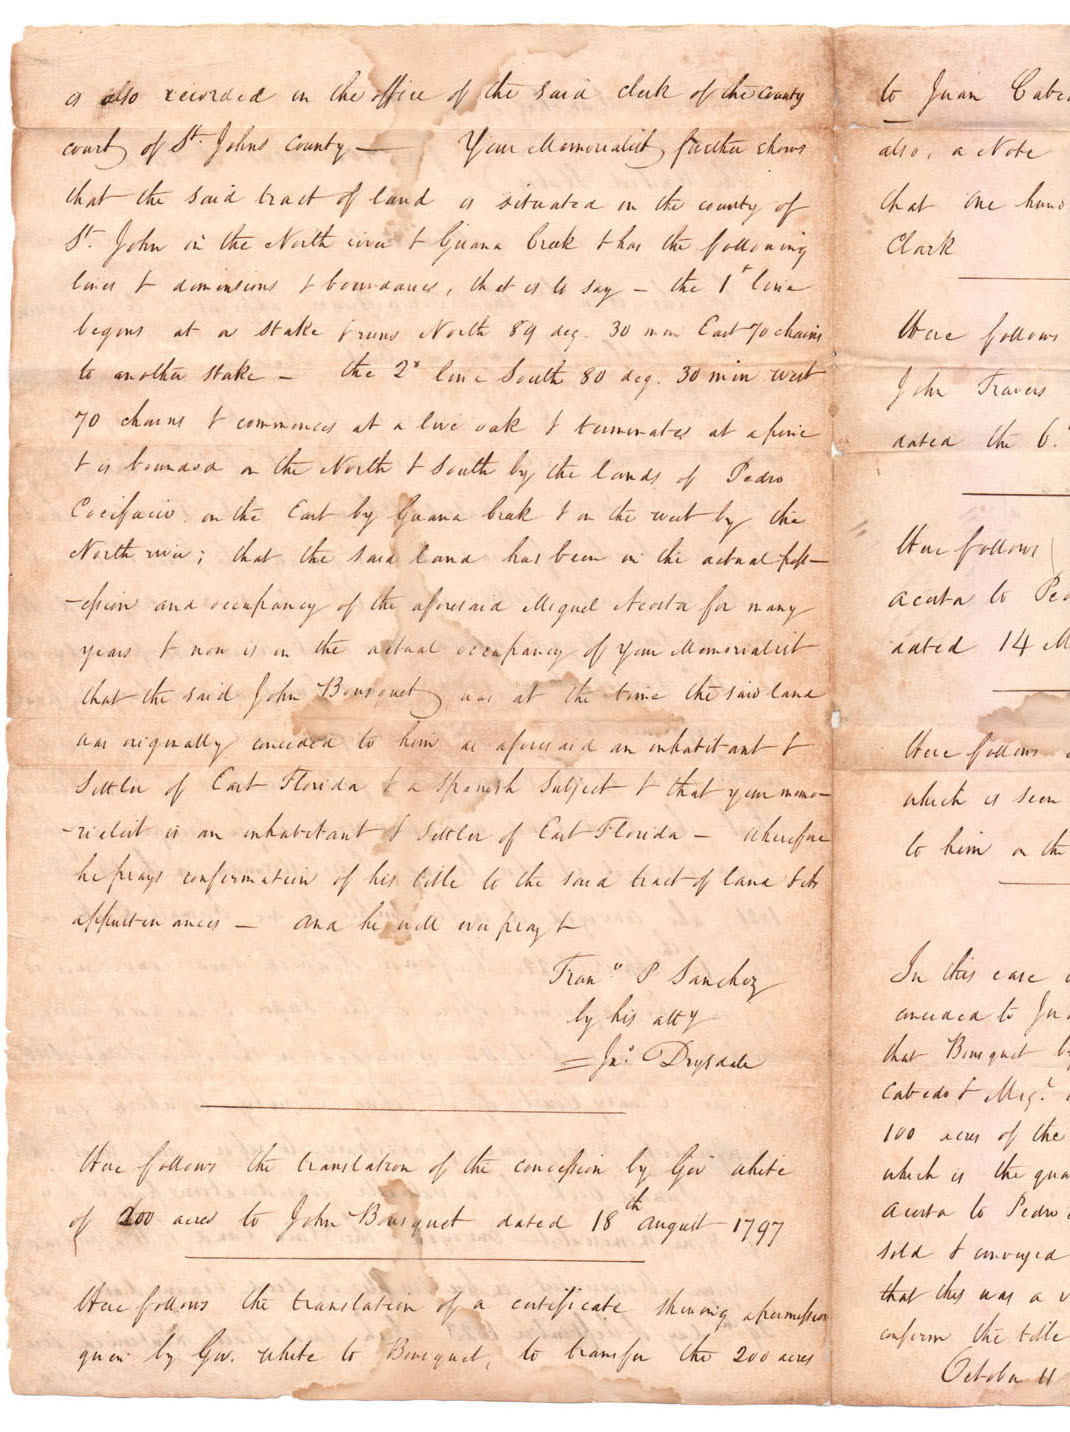 is also recorded in the office of the said clerk of the county
court of St. Johns County — Your Memorialist further shows
that the said tract of land is situated in the county of
St. John on the North river & Guana Creek & has the following
lines & dimensions & boundaries, that is to say — the 1st line
begins at a stake & runs North 89 deg. 30 min East 70 chains
to another stake — the 2d line South 80 deg. 30 min west
70 chains & commences at a live oak & terminates at a pine
& is bounded on the North & South by the lands of Pedro
Cocifacio on the East by Guana Creek & on the west by the
North river; that the said land has been in the actual poss–
–ession and occupancy of the aforesaid Miguel Acosta for many
years & now is in the actual occupancy of your Memorialist
that the said John Bousquet was at the time the said land
was originally conceded to him as aforesaid an inhabitant &
Settler of East Florida & a Spanish Subject & that your memo–
–rialist is an inhabitant & Settler of East Florida — Wherefore
he prays confirmation of his title to the said tract of land & its
appurtenances — and he will ever pray &
Frans P Sanchez
by his atty
= Jno. Drysdale
Here follows the translation of the concession by Gov White
of 200 acres to John Bousquet dated 18th August 1797
Here follows the translation of a certificate shewing a permission
given by Gov. White to Bousquet, to transfer the 200 acres
to Juan
also, a Note
that one
Clark
Here follows
John Travers
dated the 6.
Here follows
acosta to
dated 14 M
Here follows
which is seen
to him on the
In this case
conceded to
that Bousquet
Cabedo & Migl.
100 acres of the
which is the
acosta to Pedro
sold & conveyed
that this was a
confirm the title
October 11